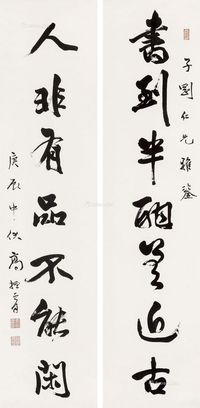 子剛仁兄雅鑒
書到半酣差近古
人非有品不能閑
庚辰中伏高振霄